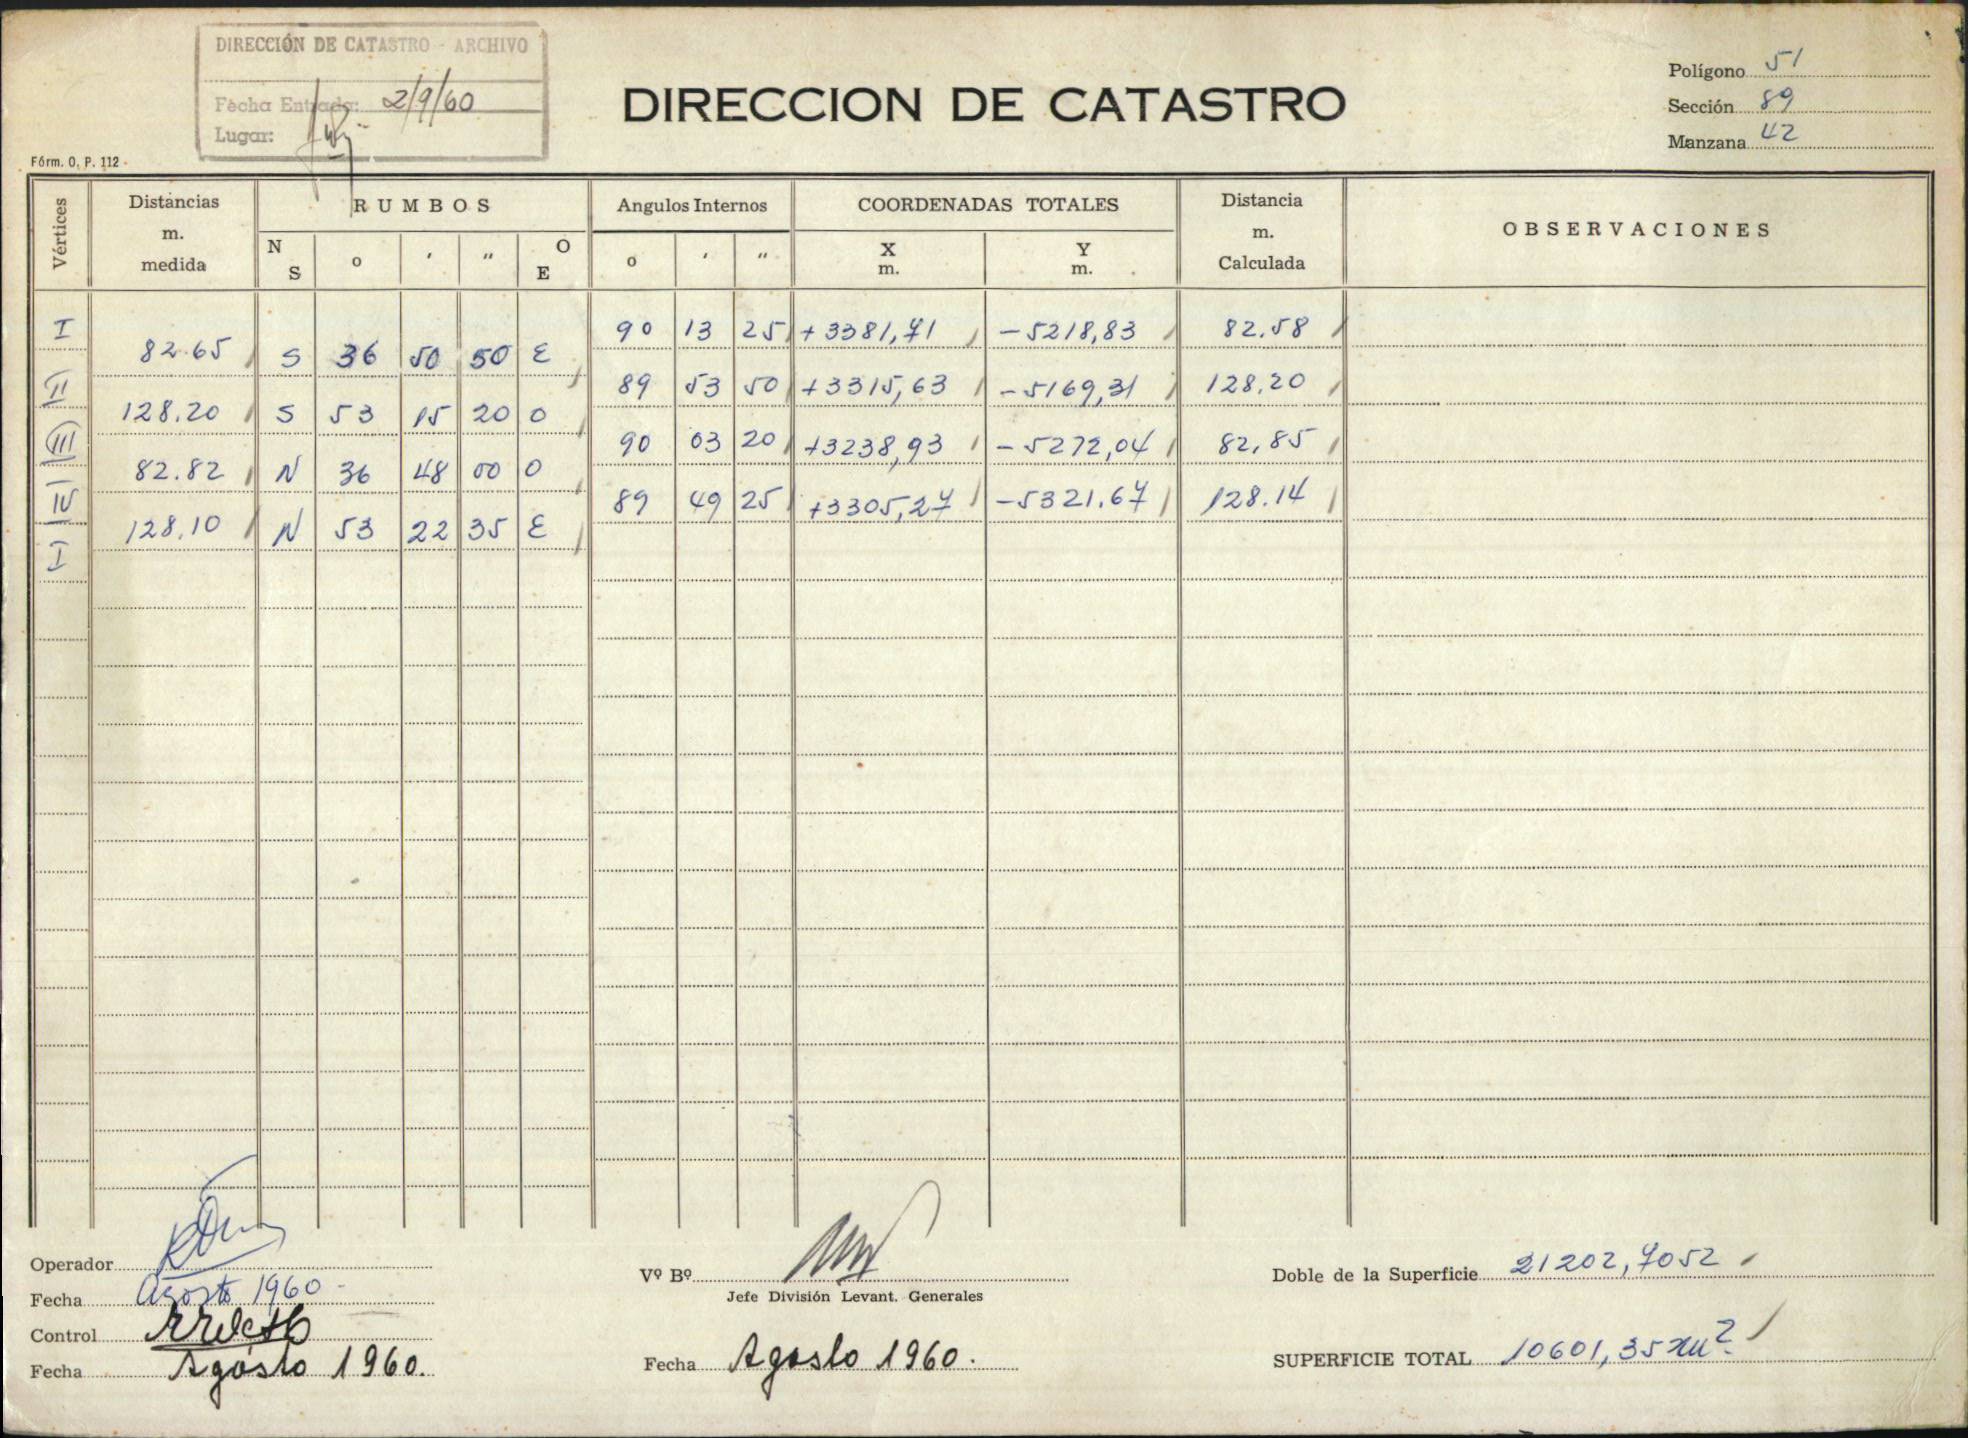 DIRECCIÓN DE CATASTRO - ARCHIVO
Fecha Entrada: 2/9/60
Lugar:
DIRECCION DE CATASTRO
Polígono 51
Sección 89
Manzana 42
Fórm. O. P. 112
Vértices
Distancias m. medida
RUMBOS
N S o ' " O E
Angulos Internos
o ' "
COORDENADAS TOTALES
X m. Y m.
Distancia m. Calculada
OBSERVACIONES
I 90 13 25 +3381,71 -5218,83 82.58
82.65 S 36 50 50 E
II 89 53 50 +3315,63 -5169,31 128.20
128.20 S 53 15 20 O
III 90 03 20 +3238,93 -5272,04 82,85
82.82 N 36 48 00 O
IV 89 49 25 +3305,27 -5321.67 128.14
128.10 N 53 22 35 E
I
Operador
Fecha Agosto 1960
Control
Fecha Agosto 1960.
Vº Bº
Jefe División Levant. Generales
Fecha Agosto 1960.
Doble de la Superficie 21202,7052
SUPERFICIE TOTAL 10601,35 m2